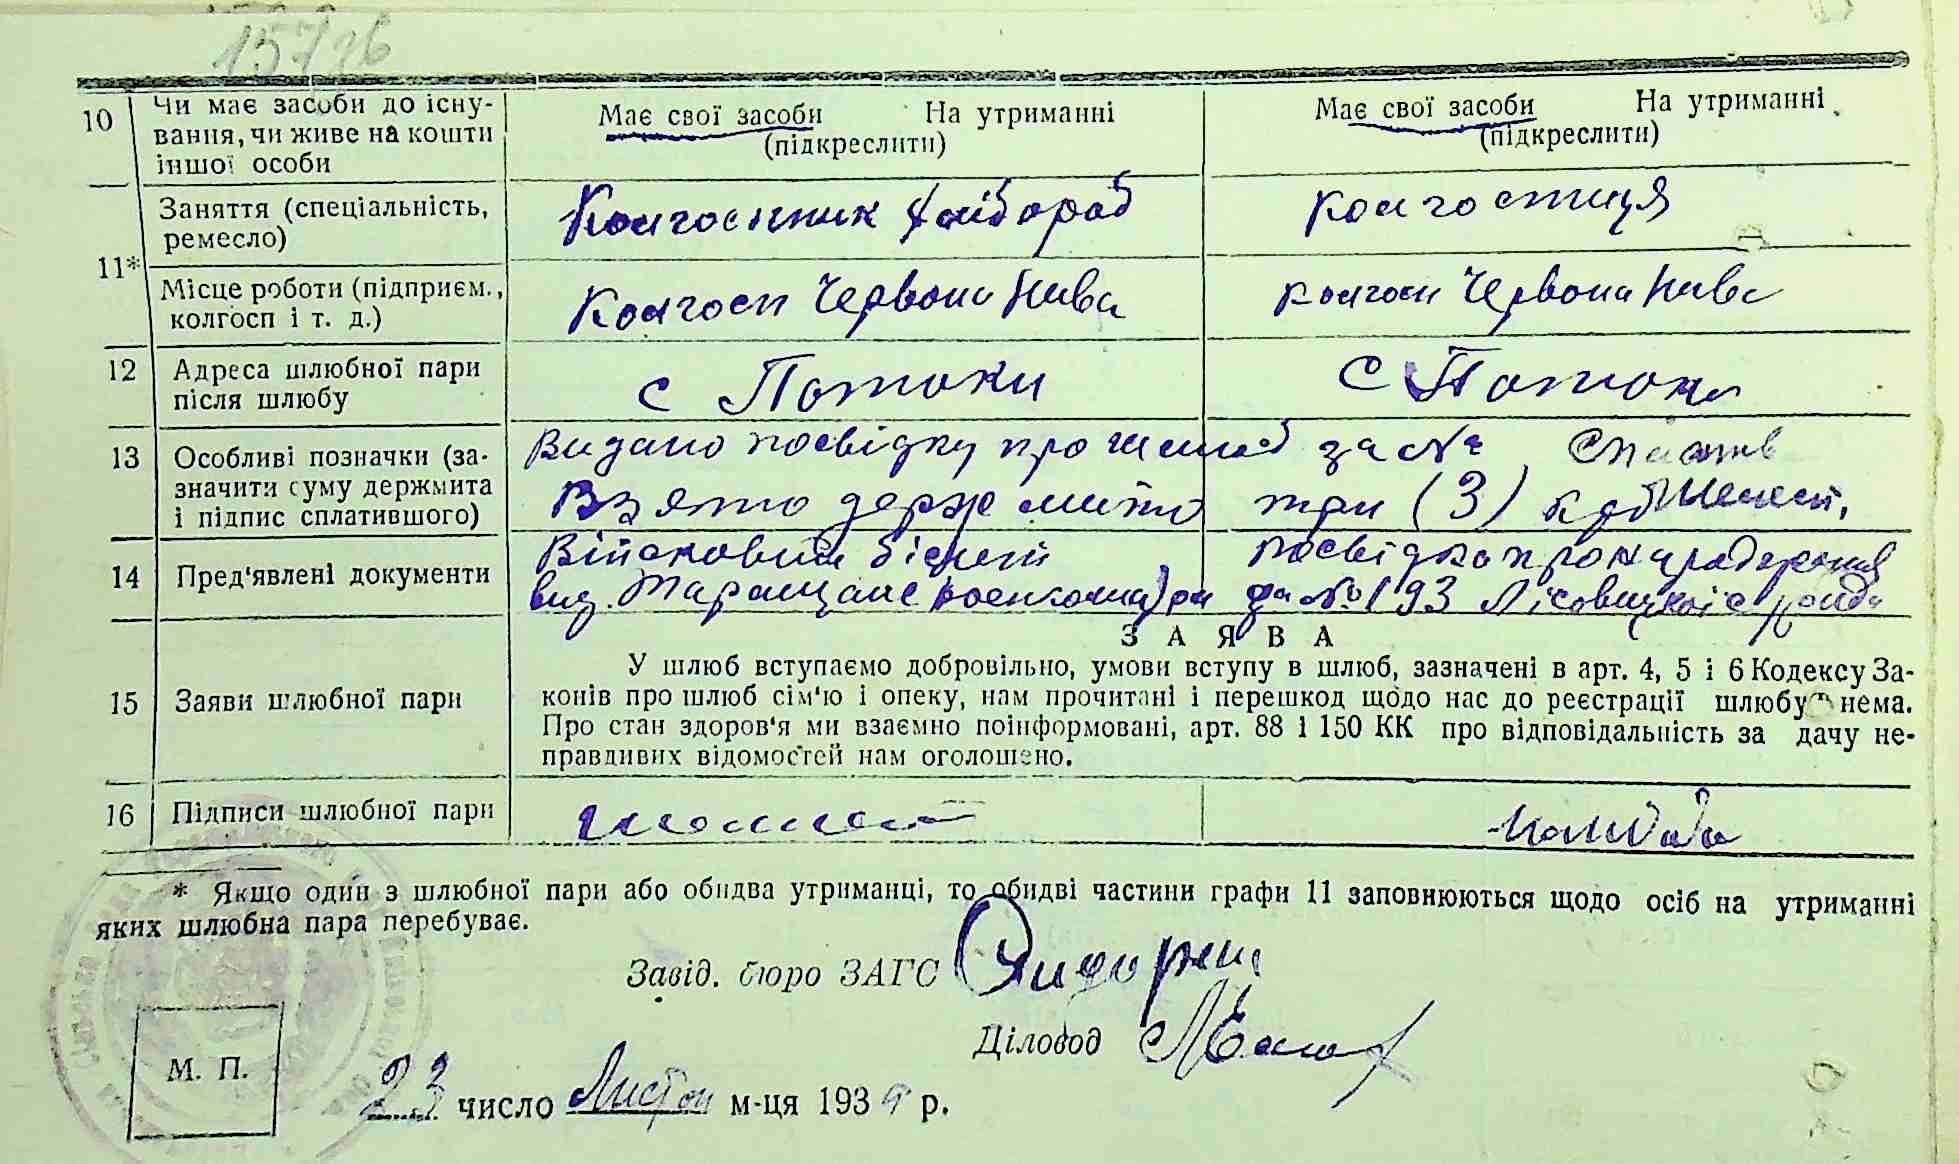 157зв
10 Чи має засоби до існу-
вання, чи живе на кошти
іншої особи
Має свої засоби На утриманні
(підкреслити)
Має свої засоби На утриманні
(підкреслити)
11*
Заняття (спеціальність,
ремесло)
Колгоспник хлібороб
колгоспниця
Місце роботи (підприєм.,
колгосп і т. д.)
Колгосп Червона Нива
колгосп Червона Нива
12 Адреса шлюбної пари
після шлюбу
с Потоки
с Потоки
13 Особливі позначки (за-
значити суму держмита
і підпис сплатившого)
Видано посвідку про шлюб за №
Взято держ мито три (3) крб
14 Пред'явлені документи
Військовий білет
вид. Таращанс
посвідка про народження
за № 193 Лісовицької с ради
З А Я В А
15 Заяви шлюбної пари
У шлюб вступаємо добровільно, умови вступу в шлюб, зазначені в арт. 4, 5 і 6 Кодексу За-
конів про шлюб сім'ю і опеку, нам прочитані і перешкод щодо нас до реєстрації шлюбу нема.
Про стан здоров'я ми взаємно поінформовані, арт. 88 і 150 КК про відповідальність за дачу не-
правдивих відомостей нам оголошено.
16 Підписи шлюбної пари
* Якщо один з шлюбної пари або обидва утриманці, то обидві частини графи 11 заповнюються щодо осіб на утриманні
яких шлюбна пара перебуває.
Завід. бюро ЗАГС
Діловод
М. П.
23 число Листоп м-ця 1939 р.